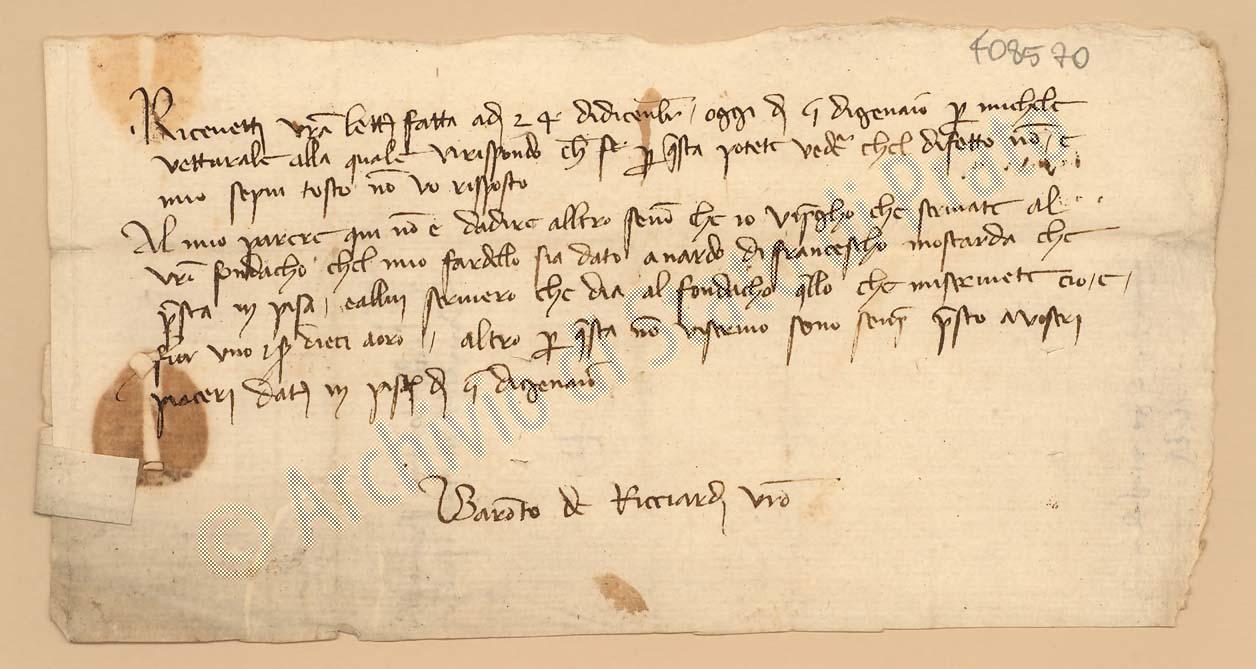 408570
Ricevetti vr̄a letta fatta adi 24 didicenbr̄ / oggi di 9 digenaio p michele
vetturale alla quale virispondo p q̄sta potete vedr̄ chel difetto nō / e
mio sepiu tosto nō vo risposto
Al mio parere qui nō e dadire alltro senō che io vip̄gho che scrivate al
vr̄o fondacho chel mio fardello sia dato anardo difrancescho mostarda che
p̄sta in pisa / eallui scrivero che dia al fondacho q̄llo che miscrivete cio / e /
fior uno dieci aoro / altro p q̄sta nō viscrivo sono senp̄ p̄sto avostri
piaceri dat in di 9 digenaio
Barōto de Ricciardi
© Archivio di Stato di Prato